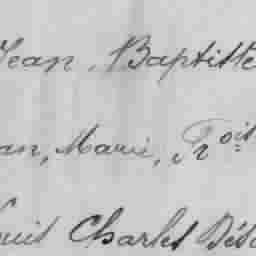 Jean, Baptiste
an, Marie, Frois
ouis Charles Dés